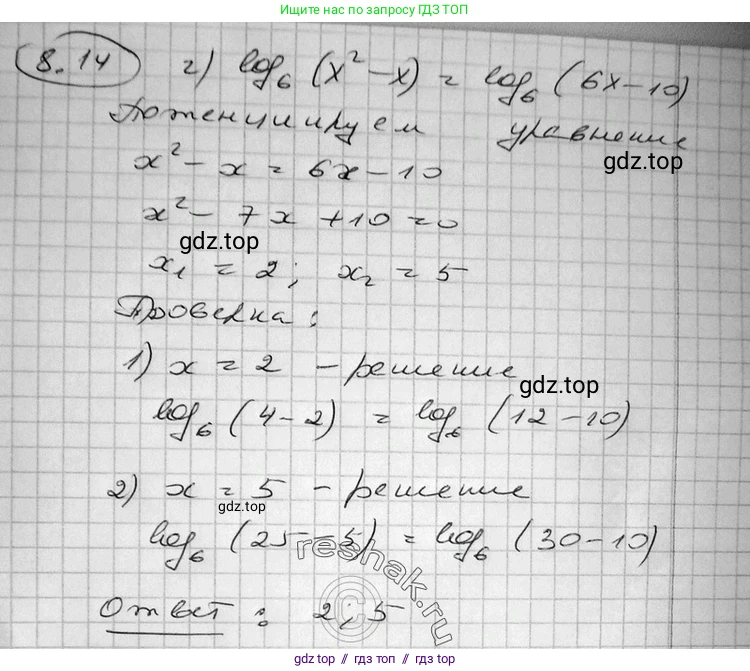 Ищите нас по запросу ГДЗ ТОП
8.14 г) log₆ (x² – x) = log₆ (6x – 10)
Потенциируем уравнение
gdz.top
x² – x = 6x – 10
x² – 7x + 10 = 0
gdz.top
x₁ = 2; x₂ = 5
Проверка:
1) x = 2 – решение
gdz.top
log₆ (4 – 2) = log₆ (12 – 10)
2) x = 5 – решение
gdz.top
log₆ (25 – 5) = log₆ (30 – 10)
reshak.ru
©
Ответ: 2; 5
gdz top // гдз топ // gdz.top